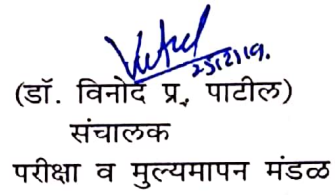 25/2/19.
(डॉ. विनोद प्र. पाटील)
संचालक
परीक्षा व मुल्यमापन मंडळ